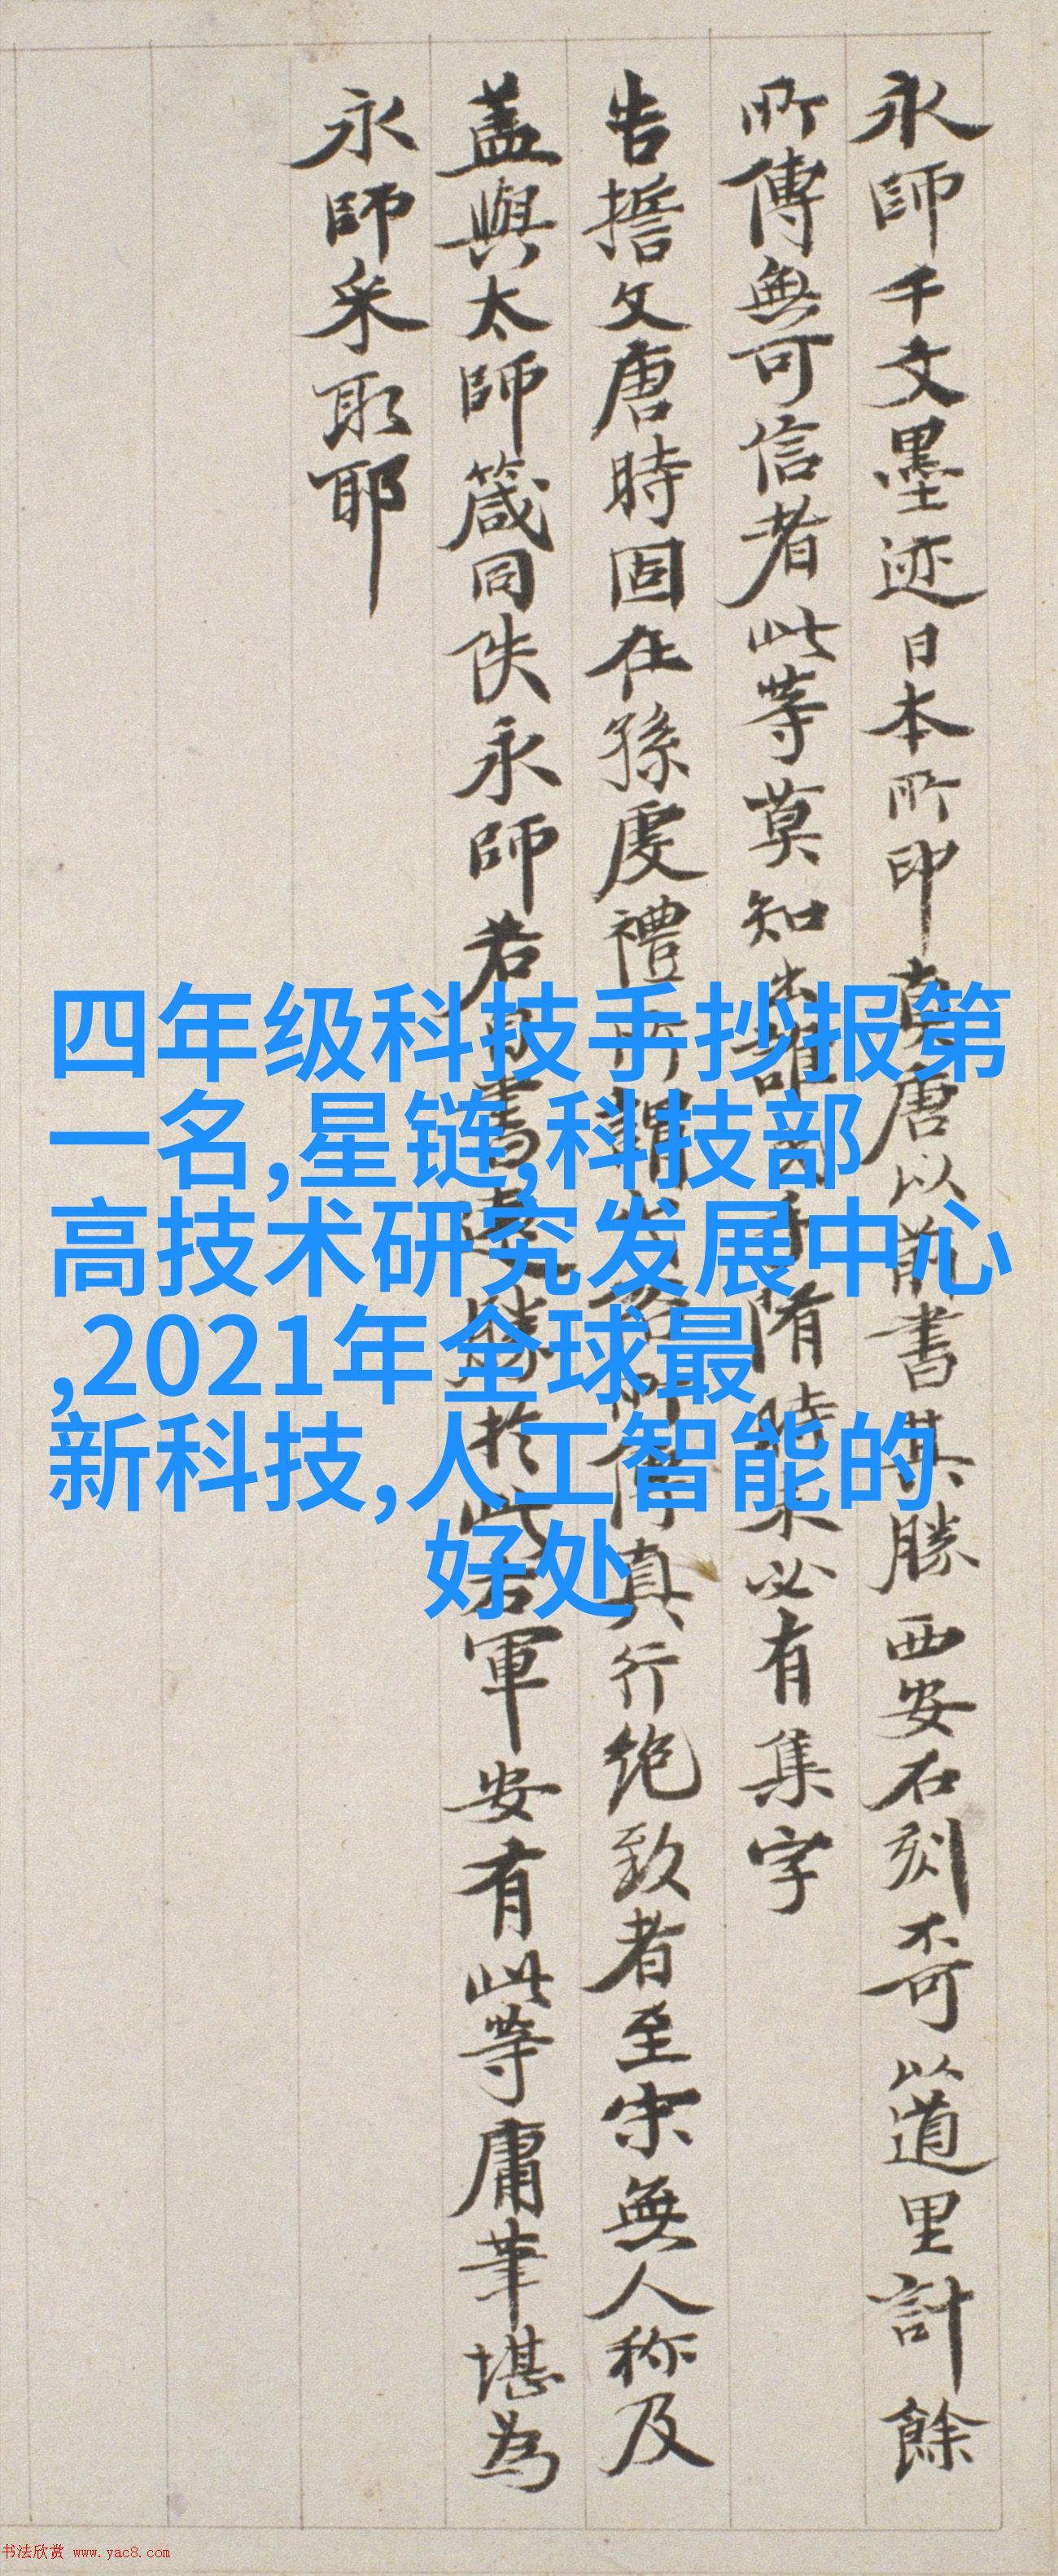 永師千文墨迹日本所印真唐以前書其勝西安石刻不可以道里計餘
所傳無可信者此等莫知出誰氏手隋時未必有集字
告誓文唐時固在孫虔禮所謂右所傳真行絶致者至宋無人称及
盖與太師箴同佚永師若書勝於此右軍安有此等庸筆堪為
永師采取耶
四年级科技手抄报第
一名,星链,科技部
高技术研究发展中心
,2021年全球最
新科技,人工智能的
好处
书法欣赏 www.yac8.com